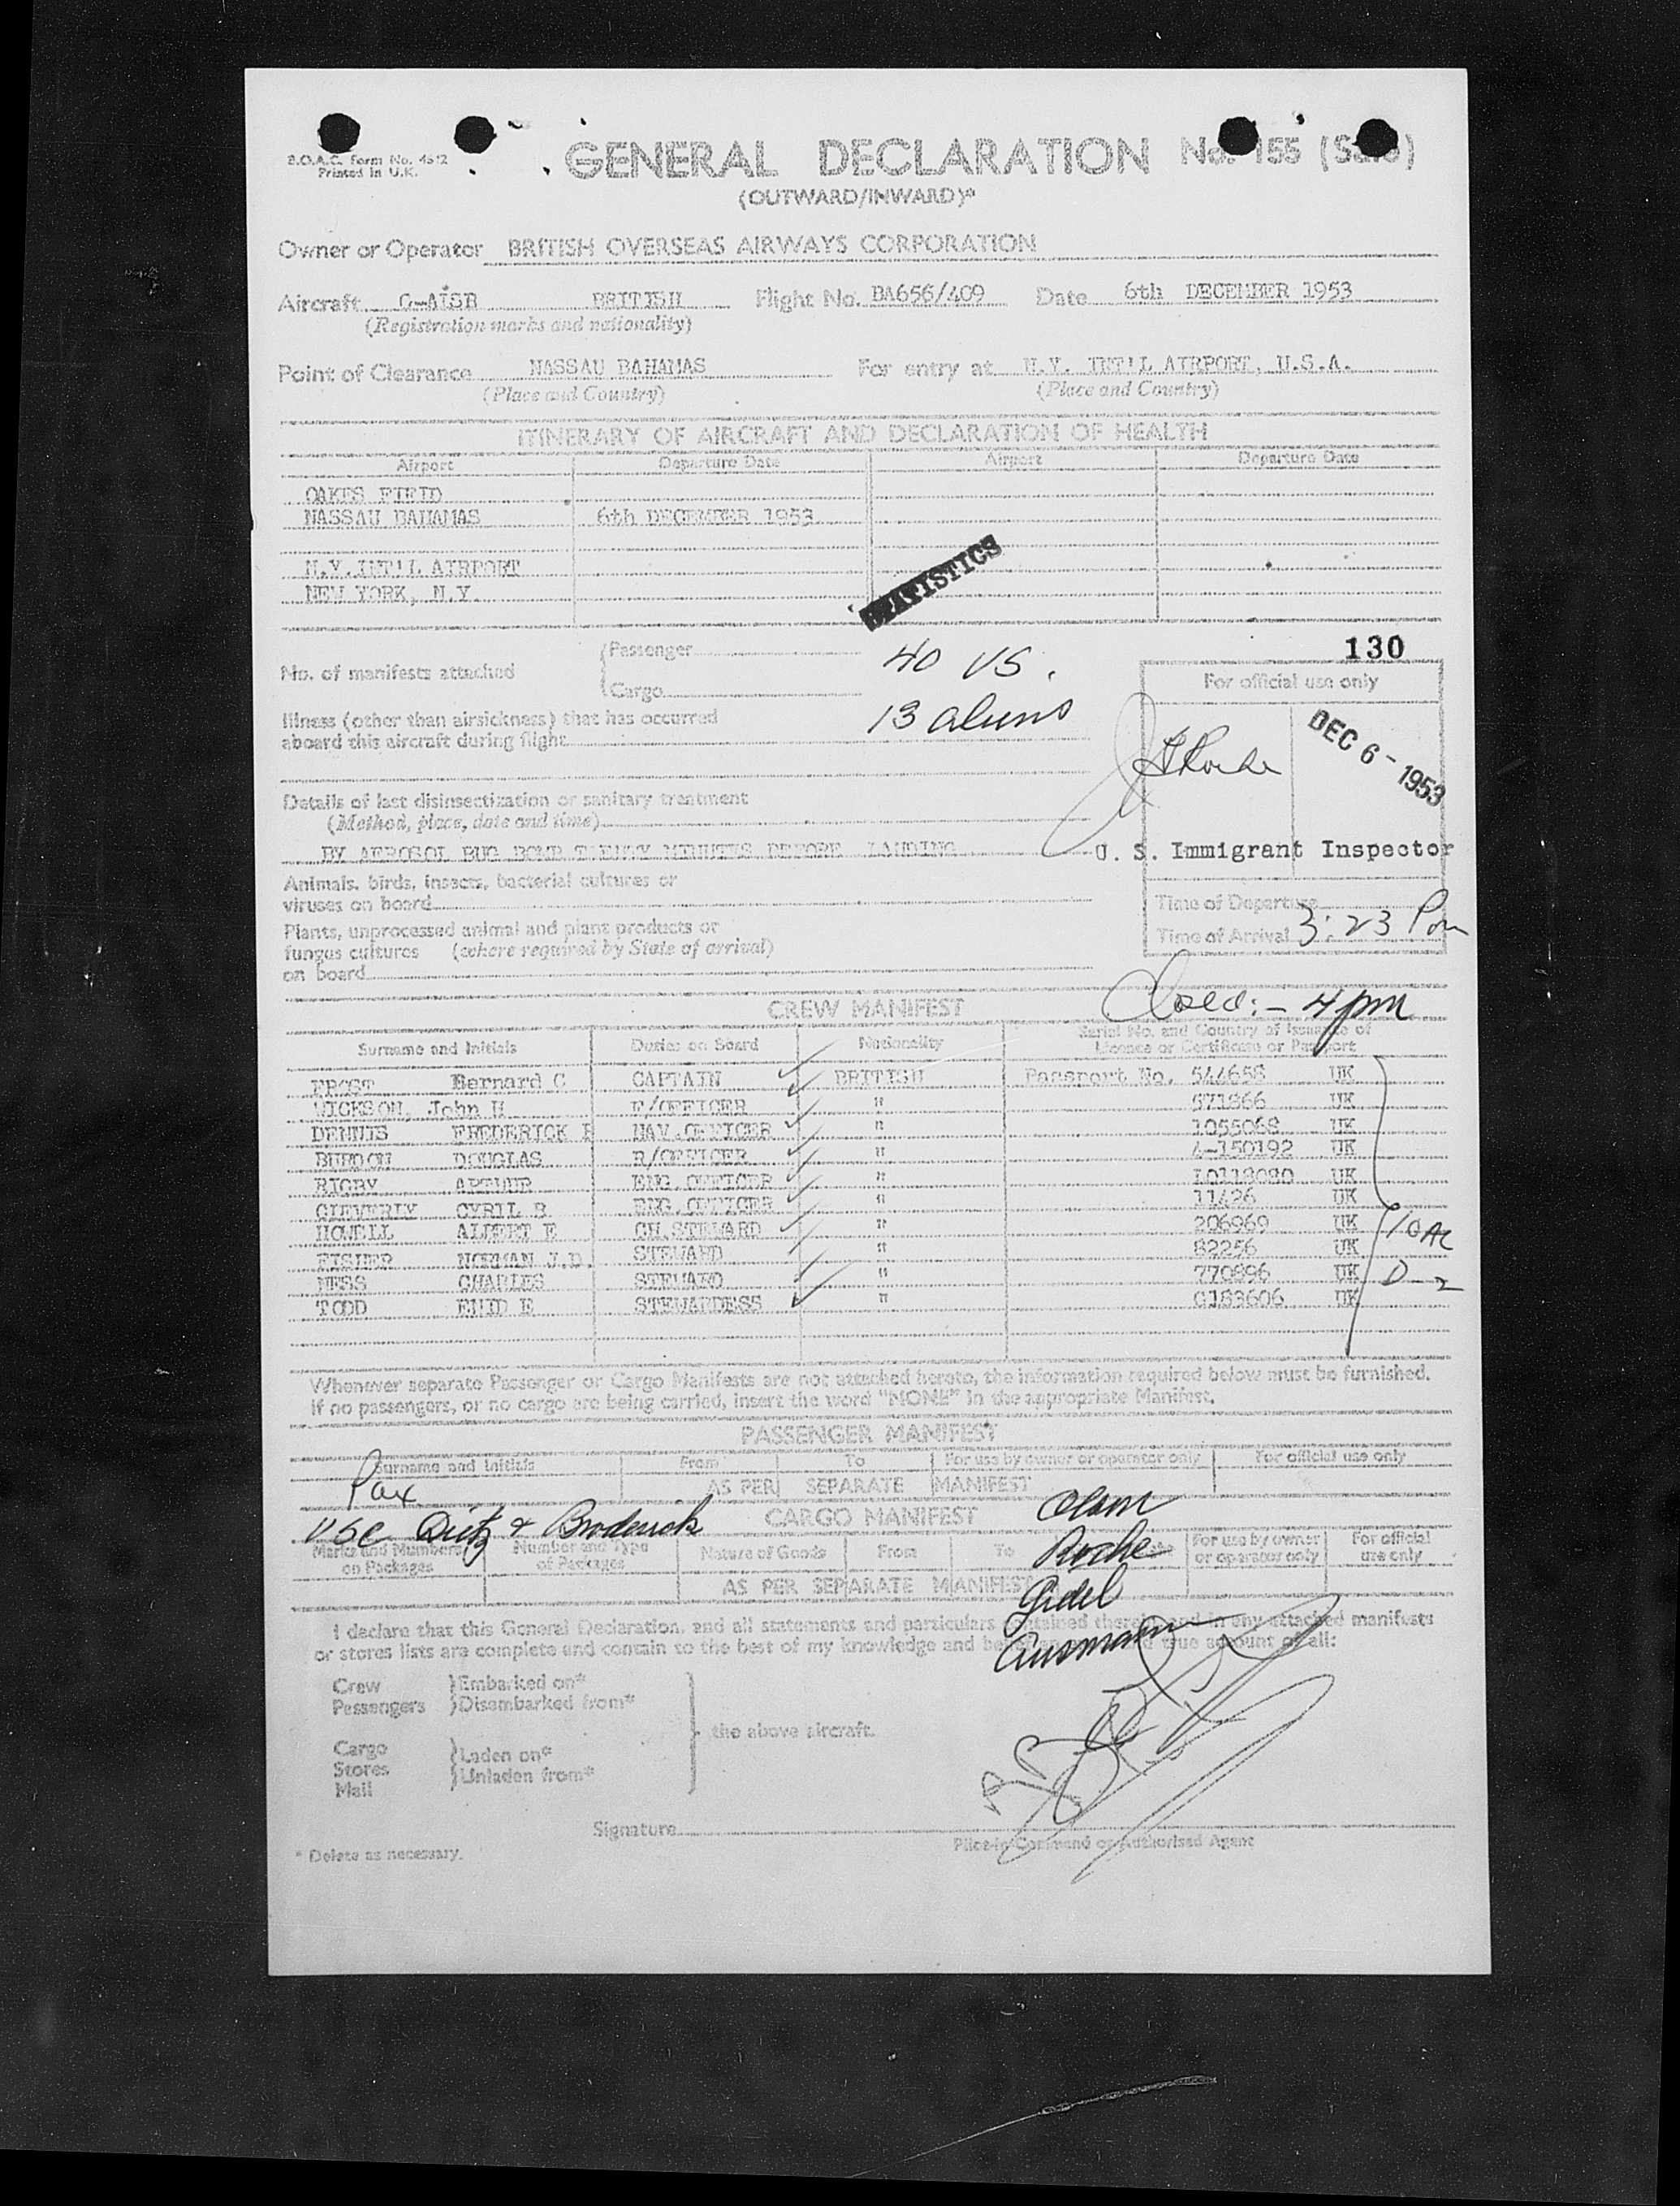 B.O.A.C. Form No. 4512
Printed in U.K.
GENERAL DECLARATION No. 155
(OUTWARD/INWARD)*
Owner or Operator BRITISH OVERSEAS AIRWAYS CORPORATION
Aircraft BRITISH Flight No. BA656/409 Date 6th DECEMBER 1953
(Registration marks and nationality)
Point of Clearance NASSAU BAHAMAS For entry at N.Y. INT'L AIRPORT, U.S.A.
(Place and Country) (Place and Country)
ITINERARY OF AIRCRAFT AND DECLARATION OF HEALTH
Airport Departure Date Airport Departure Date
OAKES FIELD
NASSAU BAHAMAS 6th DECEMBER 1953
STATISTICS
N.Y. INT'L AIRPORT
NEW YORK, N.Y.
130
No. of manifests attached
Passenger
Cargo
40 US.
13 aliens
For official use only
Illness (other than airsickness) that has occurred
aboard this aircraft during flight
DEC 6 - 1953
Details of last disinsectization or sanitary treatment
(Method, place, date and time)
BY AEROSOL BUG BOMB TWENTY MINUTES BEFORE LANDING
U. S. Immigrant Inspector
Animals, birds, insects, bacterial cultures or
viruses on board
Time of Departure
Plants, unprocessed animal and plant products or
fungus cultures (where required by State of arrival)
on board
Time of Arrival 3:23 Pm
Closed:- 4pm
CREW MANIFEST
Surname and Initials Duties on Board Nationality Serial No. and Country of Issuance of
Licence or Certificate or Passport
FROST Bernard C CAPTAIN BRITISH Passport No. 544658 UK
WICKSON, John H F/OFFICER " 571866 UK
DENNIS FREDERICK NAV.OFFICER " 1055068 UK
BURDON DOUGLAS R/OFFICER " A-150192 UK
RIGBY ARTHUR ENG.OFFICER " L0118080 UK
CLEVERLY CYRIL B ENG.OFFICER " 11426 UK
HOWELL ALBERT E CH.STEWARD " 206969 UK
FISHER NORMAN J.D. STEWARD " 82256 UK
NESS CHARLES STEWARD " 770896 UK
TODD ENID E STEWARDESS " C183606 UK
D-2
Whenever separate Passenger or Cargo Manifests are not attached hereto, the information required below must be furnished.
If no passengers, or no cargo are being carried, insert the word "NONE" in the appropriate Manifest.
PASSENGER MANIFEST
Surname and Initials From To For use by owner or operator only For official use only
Pax AS PER SEPARATE MANIFEST
USC Dietz & Broderick
Olson
Roche
Gidel
CARGO MANIFEST
Marks and Numbers on Packages Number and Type of Packages Nature of Goods From To For use by owner or operator only For official use only
AS PER SEPARATE MANIFEST
I declare that this General Declaration, and all statements and particulars contained therein and in any attached manifests
or stores lists are complete and contain to the best of my knowledge and true account of all:
Crew
Passengers
Embarked on*
Disembarked from*
the above aircraft.
Cargo
Stores
Mail
Laden on*
Unladen from*
Signature
Pilot-in-Command or Authorised Agent
* Delete as necessary.